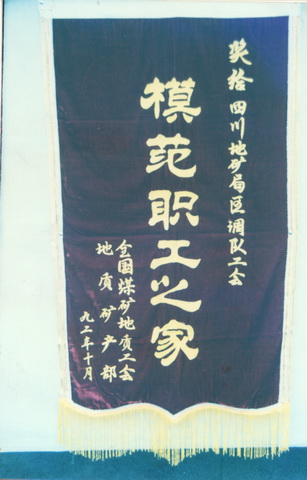 奖给四川地矿局区调队工会
模范职工之家
全国煤矿地质工会
地质矿产部
九二年十月